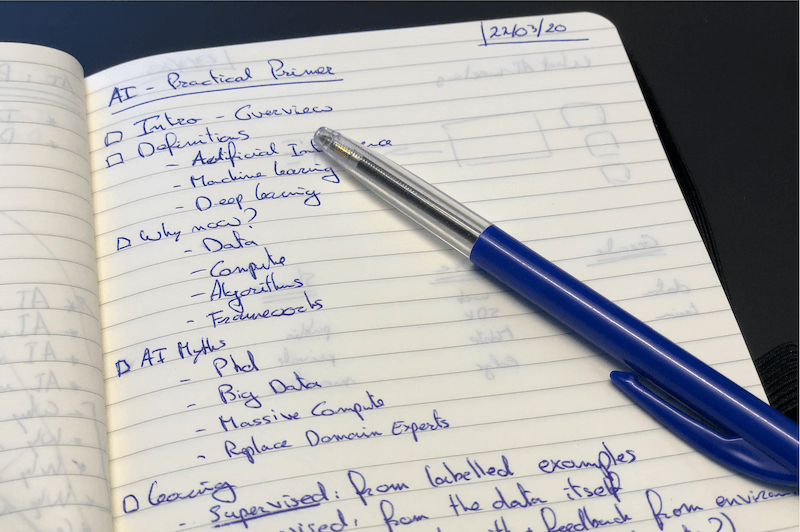 22/03/20
AI - Practical Primer
Intro - Overview
Definitions
- Artificial
- Machine learning
- Deep learning
Why now?
- Data
- Compute
- Algorithms
- Frameworks
AI Myths
- Phd
- Big Data
- Massive Compute
- Replace Domain Experts
Learning
- Supervised: from labelled examples
from the data itself
feedback from